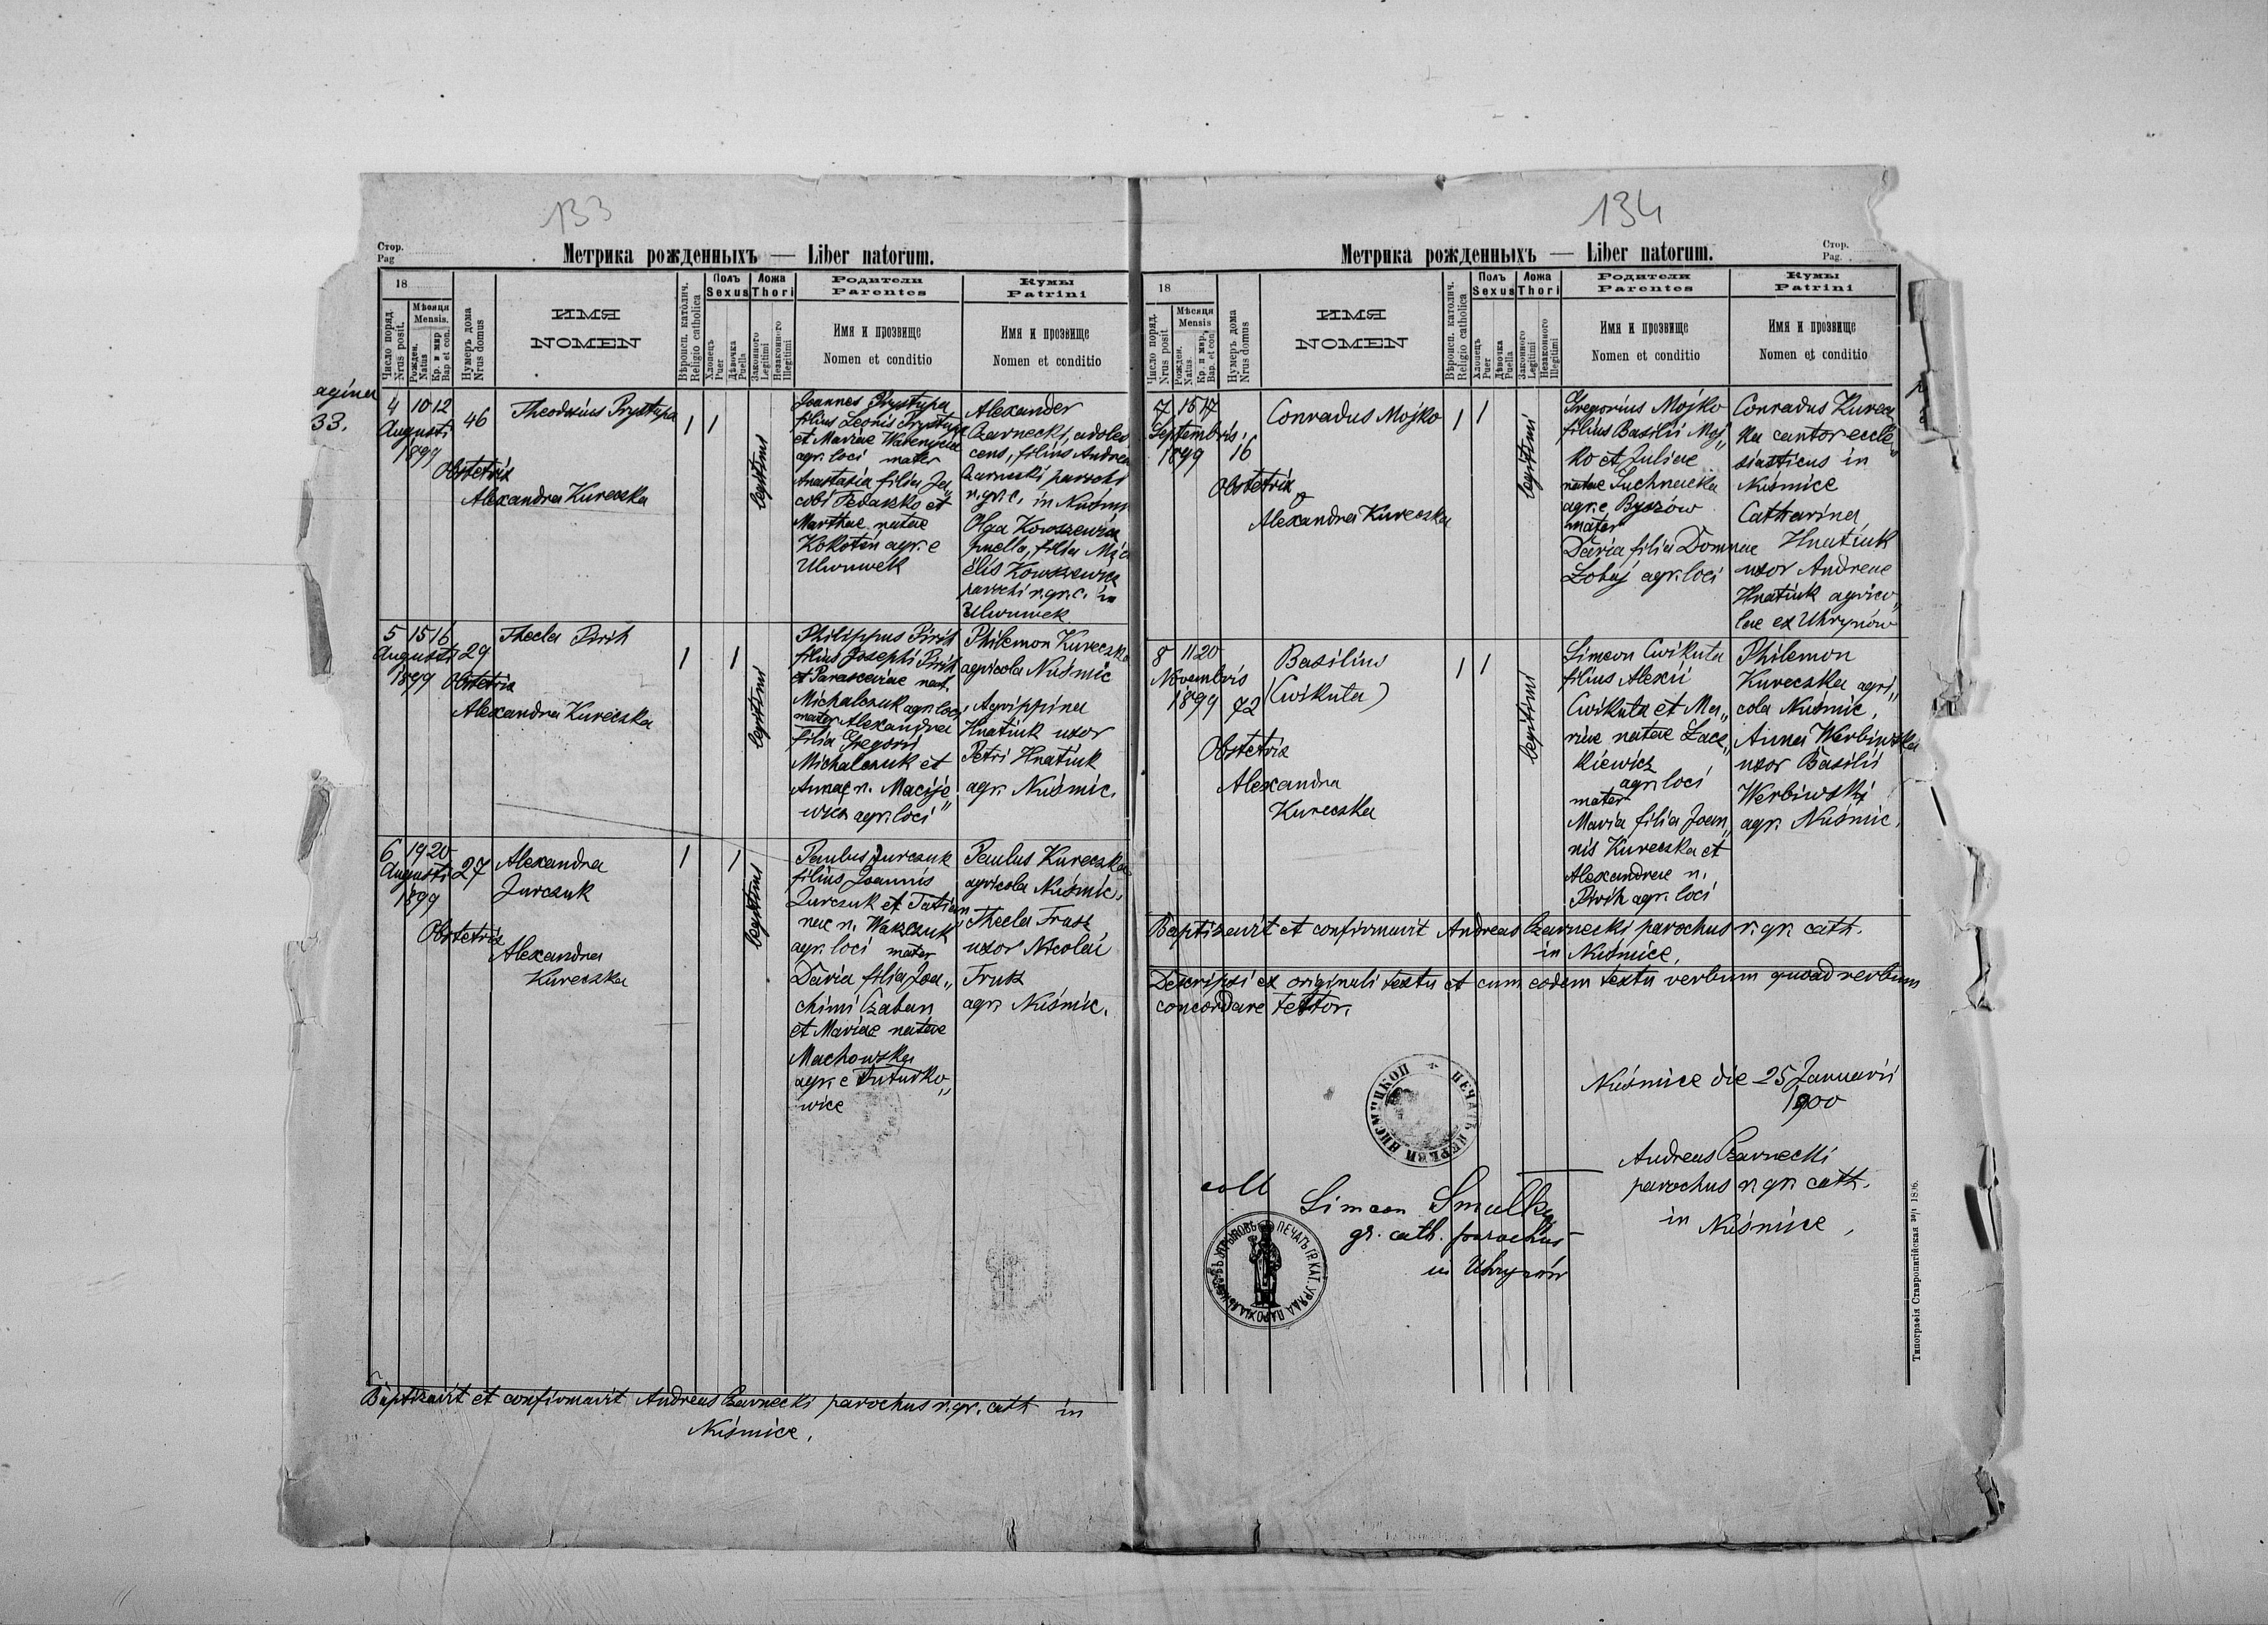 133
Стор.
Pag
Метрика рожденныхъ — Liber natorum.
18
Число поряд.
Nrus posit.
Мѣсяця
Mensis.
Рожден.
Natus
Кр. и мир
Bap et con.
Нумеръ дома
Nrus domus
ИМЯ
NOMEN
Вѣроисп. католич.
Religio catholica
Полъ
Sexus
Хлопець
Puer
Дѣвочка
Puella
Ложа
Thori
Законного
Legitimi
Незаконного
Illegitimi
Родители
Parentes
Имя и прозвище
Nomen et conditio
Кумы
Patrini
Имя и прозвище
Nomen et conditio
agina
33.
4 10 12
Augusti
1899
46
Theodosius Prystupa
1 1
legitimi
Obstetrix
Alexandra Kureczka
Joannes Prystupa
filius Leonis Prystupa
et Mariae
agr. loci mater
Anastasia filia Ja„
cobi Fedaszko et
Marthae natae
Kokotin agr. e
Ulwuwek
Alexander
Czarnecki, adoles
cens, filius Andreae
Czarnecki parochi
r. gr. c. in
Olga Kowszewicz
puella, filia Micha
elis Kowszewicz
parochi r. gr. c. in
Ulwuwek
5 15 16
Augusti
1899
29
Thecla Pirih
1 1
legitimi
Obstetrix
Alexandra Kureczka
Philippus Pirih
filius Josephi Pirih
et Parasceviae nat.
Michalczuk agr. loci,
mater Alexandra
filia Gregorii
Michalczuk et
Annae n. Macije„
wicz agr. loci
Philemon Kureczka
agricola Nuśmic
Agrippina
Hnatiuk uxor
Petri Hnatiuk
agr. Nuśmic.
6 19 20
Augusti
1899
27
Alexandra
Jurczuk
1 1
legitimi
Obstetrix
Alexandra
Kureczka
Paulus Jurczuk
filius Joannis
Jurczuk et Tatian
nae n. Waszczuk
agr. loci mater
Daria filia Joa„
chimi Czaban
et Mariae natae
Machowska
agr. e Tuturko„
wice
Paulus Kureczka
agricola Nuśmic.
Thecla Trusz
uxor Nicolai
Trusz
agr. Nuśmic.
Baptizavit et confirmavit Andreas Czarnecki parochus r. gr. cath in
Nuśmice.
134
Стор.
Pag.
Метрика рожденныхъ — Liber natorum.
18
Число поряд.
Nrus posit
Мѣсяця
Mensis
Рожден.
Natus.
Кр. и мир.
Bap. et con.
Нумеръ дома
Nrus domus
ИМЯ
NOMEN
Вѣроисп. католич.
Religio catholica
Полъ
Sexus
Хлопець
Puer
Дѣвочка
Puella
Ложа
Thori
Законного
Legitimi
Незаконного
Illegitimi
Родители
Parentes
Имя и прозвище
Nomen et conditio
Кумы
Patrini
Имя и прозвище
Nomen et conditio
7 15 17
Septembris.
1899 16
Conradus Mojko
1 1
legitimi
Obstetrix
Alexandra Kureczka
Gregorius Mojko
filius Basilii Moj„
ko et Juliae
natae Suchnacka
agr. e Byszów
mater
Daria filia Domnae
Łobaj agr. loci
Conradus Kurecz
ka cantor eccle„
siasticus in
Nuśmice
Catharina
Hnatiuk
uxor Andreae
Hnatiuk agrico„
lae ex Uhrynów
8 11 20
Novembris
1899 72
Basilius
(Cwikuta)
1 1
legitimi
Obstetrix
Alexandra
Kureczka
Simeon Cwikuta
filius Alexii
Cwikuta et Ma„
riae natae Łacz„
kiewicz
agr. loci
mater
Maria filia Joan„
nis Kureczka et
Alexandrae n.
Pirih agr. loci
Philemon
Kureczka agri„
cola Nuśmic,
Anna Werbiwska
uxor Basilii
Werbiwski
agr. Nuśmic.
Baptizavit et confirmavit Andreas Czarnecki parochus r. gr. cath.
in Nuśmice.
Descripsi ex originali textu et cum eodem textu verbum quoad verbum
concordare testor.
Nuśmice die 25 Januarii
1900
Andreas Czarnecki
parochus r. gr. cath.
in Nuśmice,
coll
Simeon Smulka
gr. cath. parochus
in Uhrynów
Типографія Ставропигійская